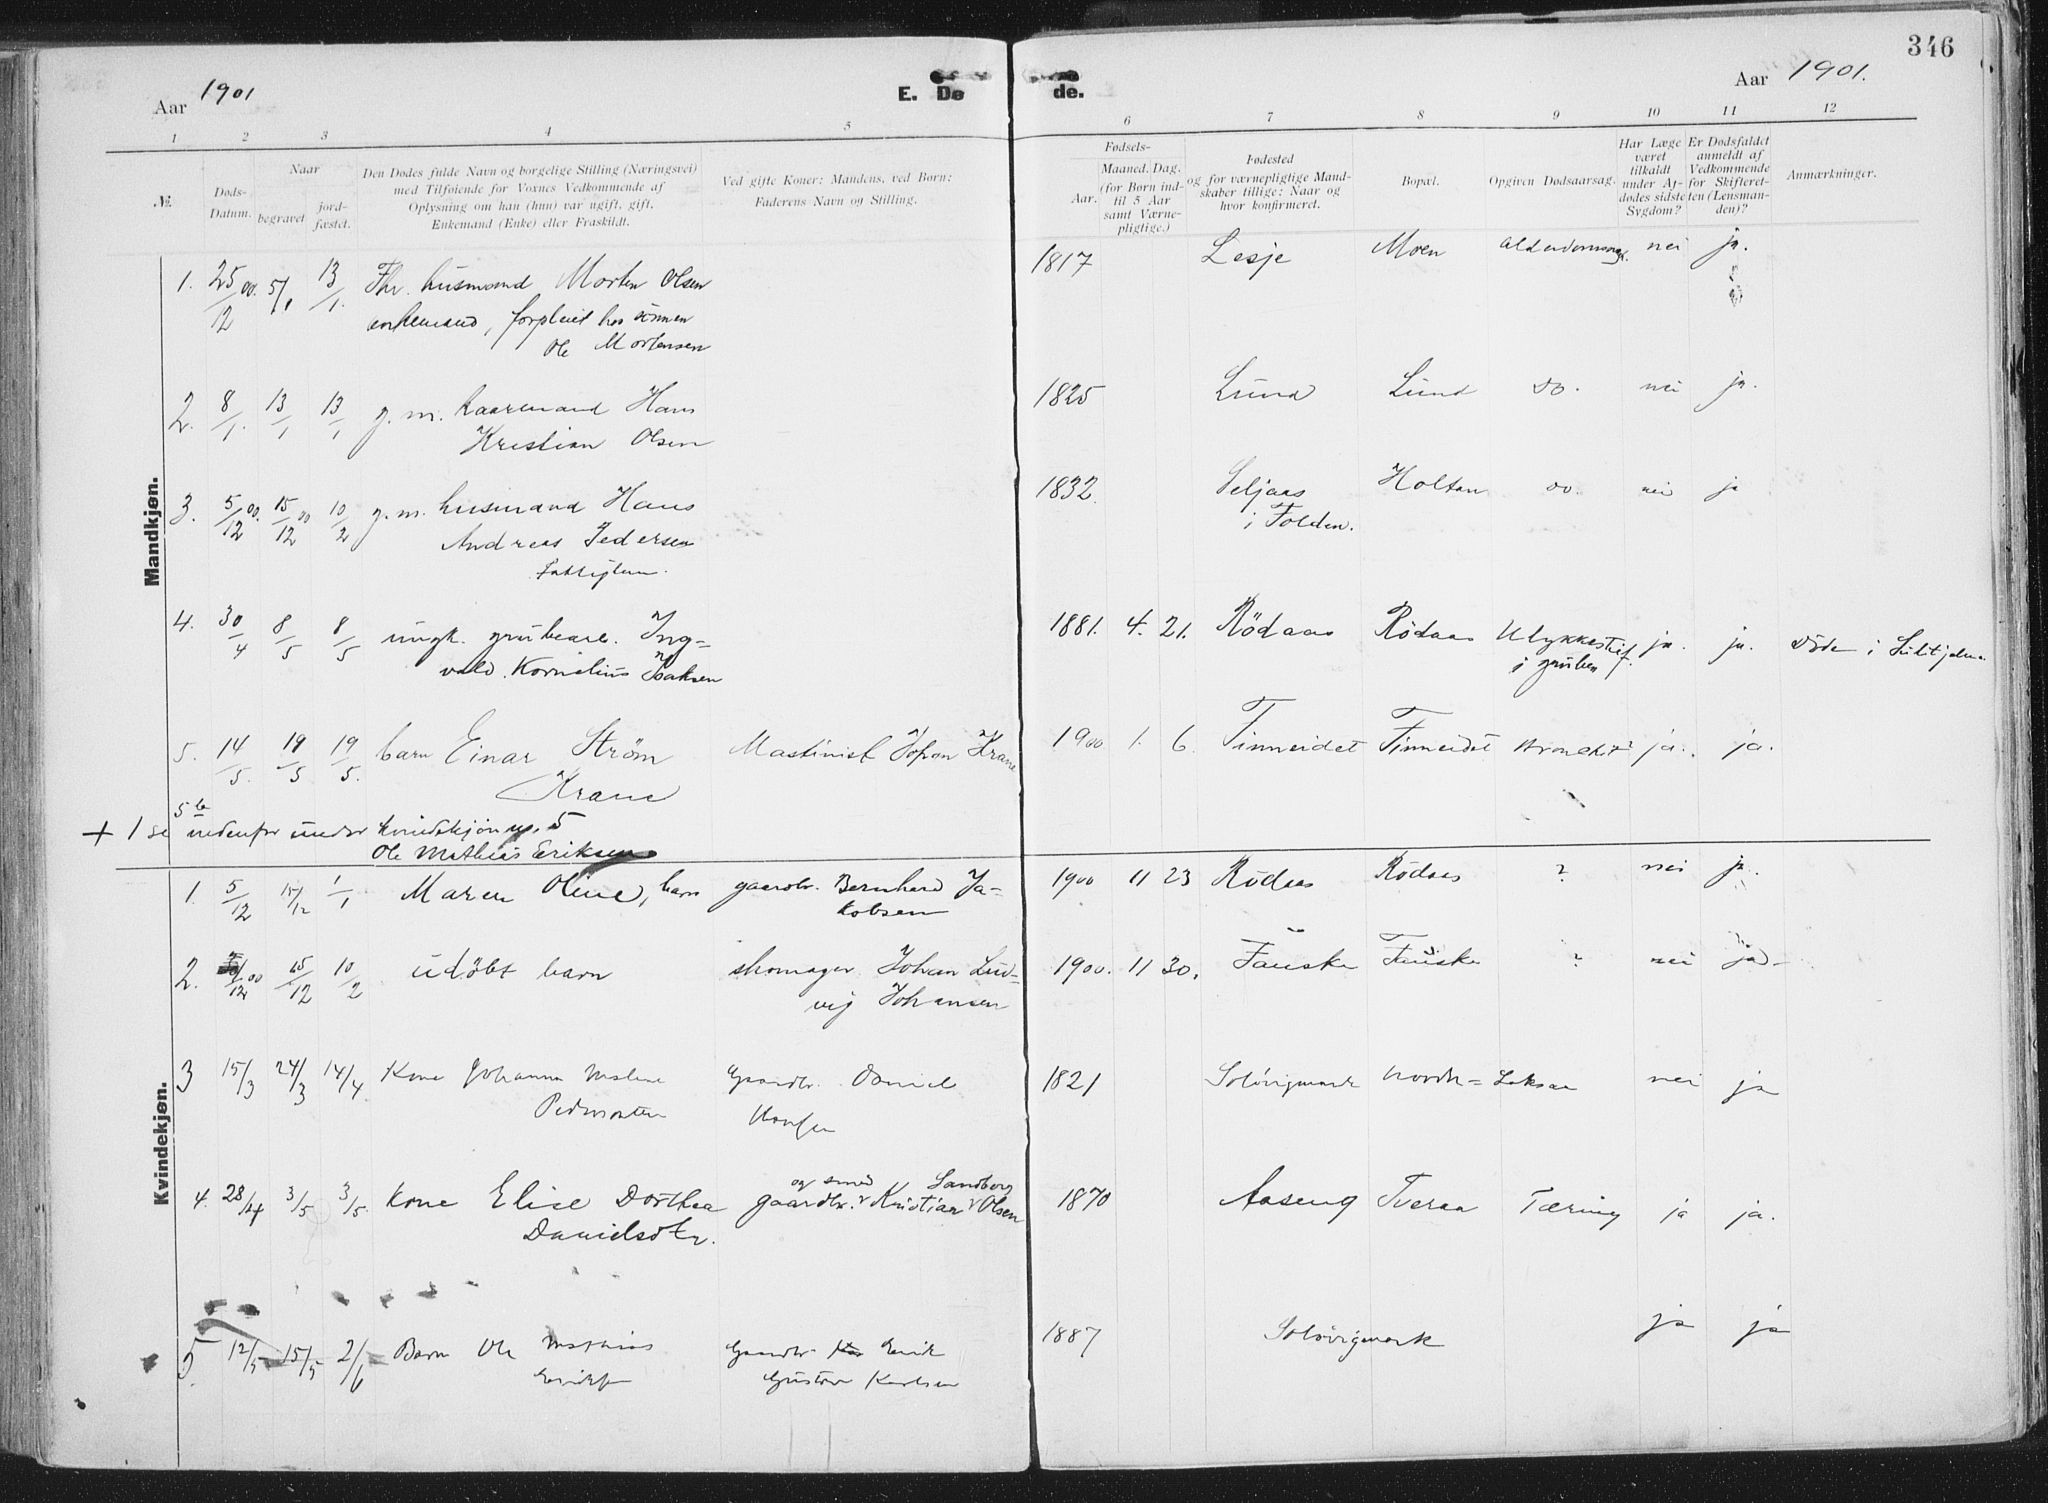 346
Aar 1901
E. Dø de.
Aar 1901.
1 2 3 4 5 6 7 8 9 10 11 12
№.
Døds-Datum.
Naar
begravet
jord-fæstet.
Den Dødes fulde Navn og borgelige Stilling (Næringsvei)
med Tilføiende for Voxnes Vedkommende af
Oplysning om han (hun) var ugift, gift,
Enkemand (Enke) eller Fraskildt.
Ved gifte Koner: Mandens, ved Børn:
Faderens Navn og Stilling.
Fødsels-
Aar.
Maaned. Dag.
(for Børn ind-
til 5 Aar
samt Værne-
pligtige.)
Fødested
og for værnepligtige Mand-
skaber tillige: Naar og
hvor konfirmeret.
Bopæl.
Opgiven Dødsaarsag.
Har Læge
været
tilkaldt
under Af-
dødes sidste
Sygdom?
Er Dødsfaldet
anmeldt af
Vedkommende
for Skifteret-
ten (Lensman-
den)?
Anmærkninger.
Mandkjøn.
1. 25/12 00. 5/1 13/1. Fhr. husmand Morten Olsen 1817 Lesje Moen nei ja.
enkemand, forpleiet hos sønnen
Ole Mortensen
2. 8/1. 13/1 13/1 g. m. kaarmand Hans 1825 Lund Lund do. nei ja.
Kristian Olsen
3. 5/12 00. 15/12 00 10/2 g. m. husmand Hans 1832. Seljaas Holtan do. nei ja
i Folden.
Andreas Pedersen
Fattiglem.
4. 30/4 8/5 8/5 ungk. grubearb. Ing- 1881. 4. 21. Rödaas Rödaas Ulykkestilf. ja. ja. Döde i Sulitjelma
i gruben
vald Kornelius Isaksen
5. 14/5. 19/5 19/5. barn Einar Ström Maskinist Johan Krane 1900 1. 6. Finneidet Finneidet Bronchit ja. ja.
Krane
+ 1 se 5b nedenfor under kvindekjøn no. 5
Ole Mathias Eriksen
Kvindekjøn.
1. 5/12 15/12 1/1 Maren Oline, barn gaardbr. Bernhard Ja- 1900 11 23 Rödaas Rödaas ? nei ja.
kobsen
2. 00 15/12 10/2 udöbt barn skomager Johan Lud- 1900. 11 30. Fauske Fauske ? nei ja
vig Johansen
3 15/3 24/3 14/4. Kone Johanna Gaardbr. Daniel 1821 Solövigmark Nordr= Laksaa nei ja
Hansen
4. 28/4 3/5 3/5. Kone Elise Dorthea gaardbr. og smed Kristian Sandberg Olsen 1870 Aaseng Tveraa Tæring ja ja.
Danielsdtr.
5. 12/5 15/5 2/6 Barn Ole Mathias Gaardbr. Erik 1887 Solövigmark ja ja
Gustav Karlsen